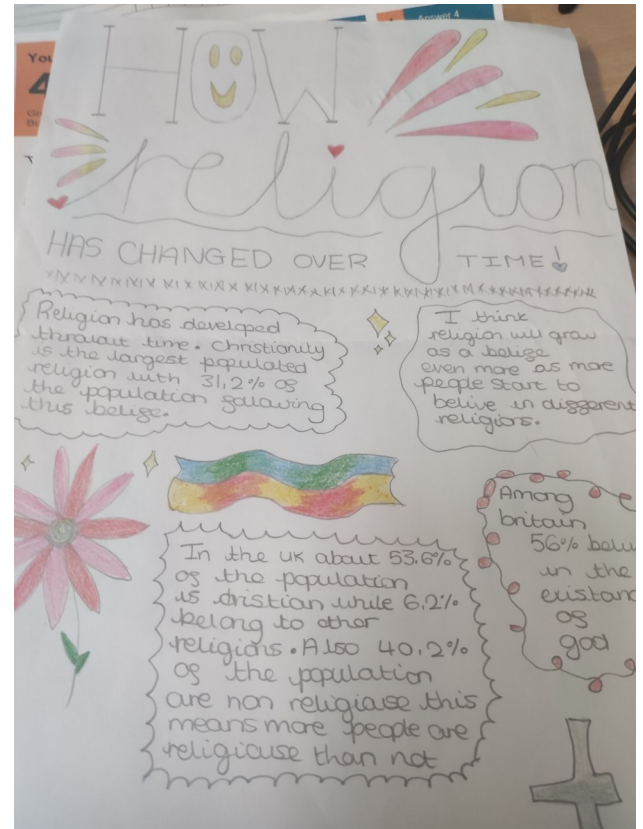 Answer 4
You
HOW
religion
HAS CHANGED OVER TIME!
Religion has developed
throuout time. Christianity
is the largest populated
religion with 31,2% of
the population following
this belife.
I think
religion will grow
as a belife
even more as more
people start to
belive in different
religions.
In the UK about 53.6%
of the population
is christian while 6.2%
belong to other
religions. Also 40.2%
of the population
are non religiouse this
means more people are
religiouse than not
Among
britain
56% beliv
in the
existanc
of
god